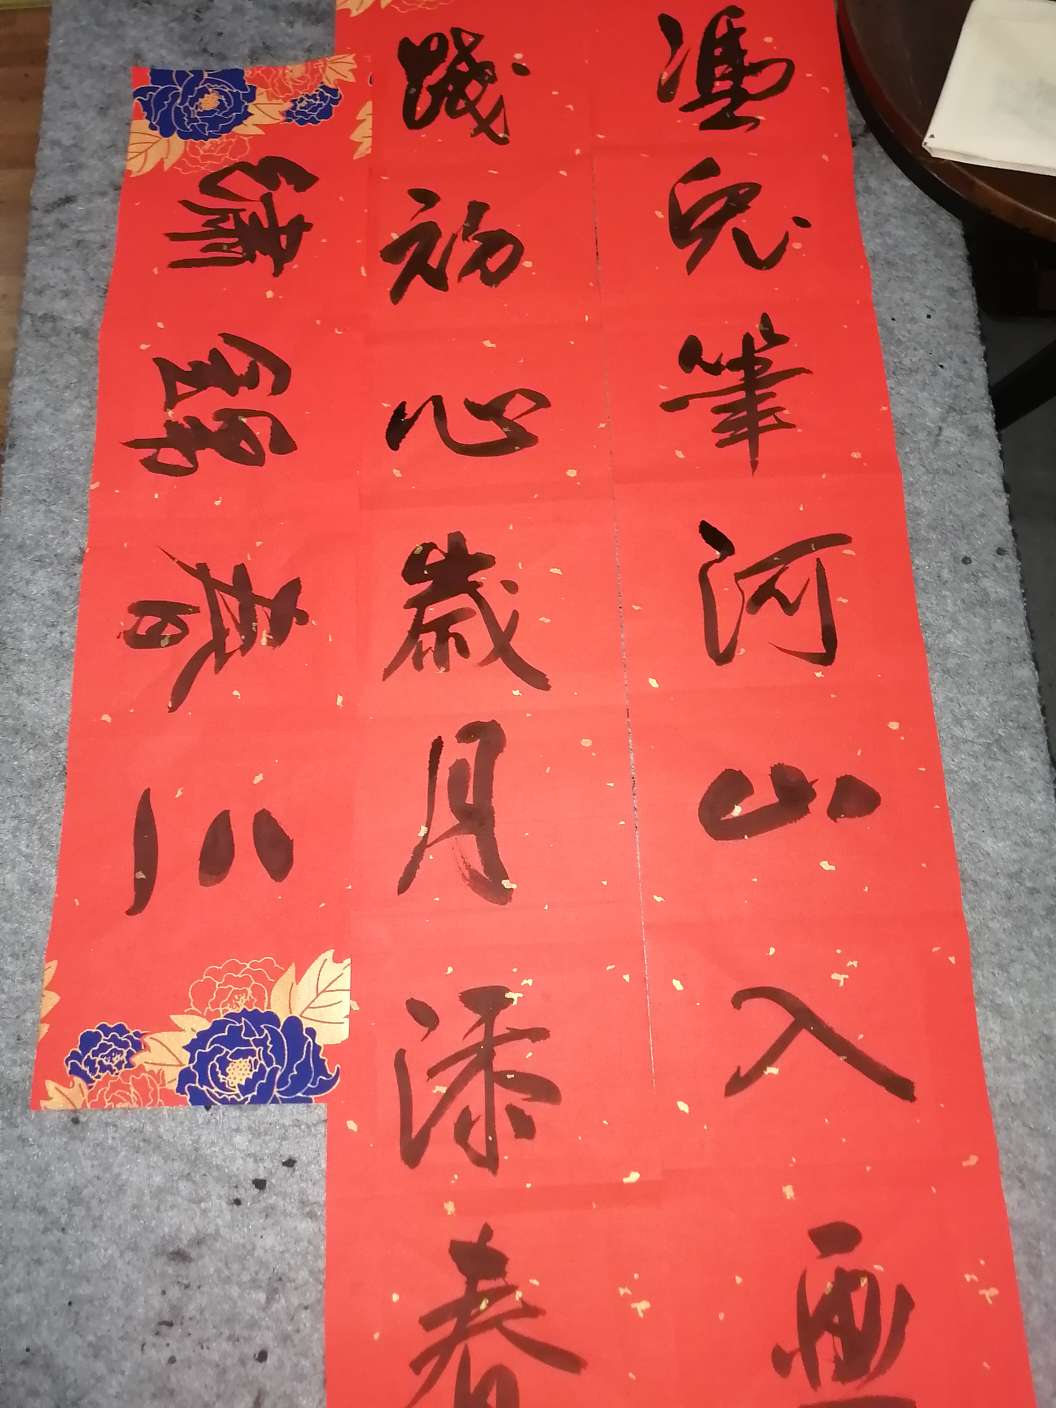 憑兔筆河山入畫
踐初心歲月添春
三春錦繡